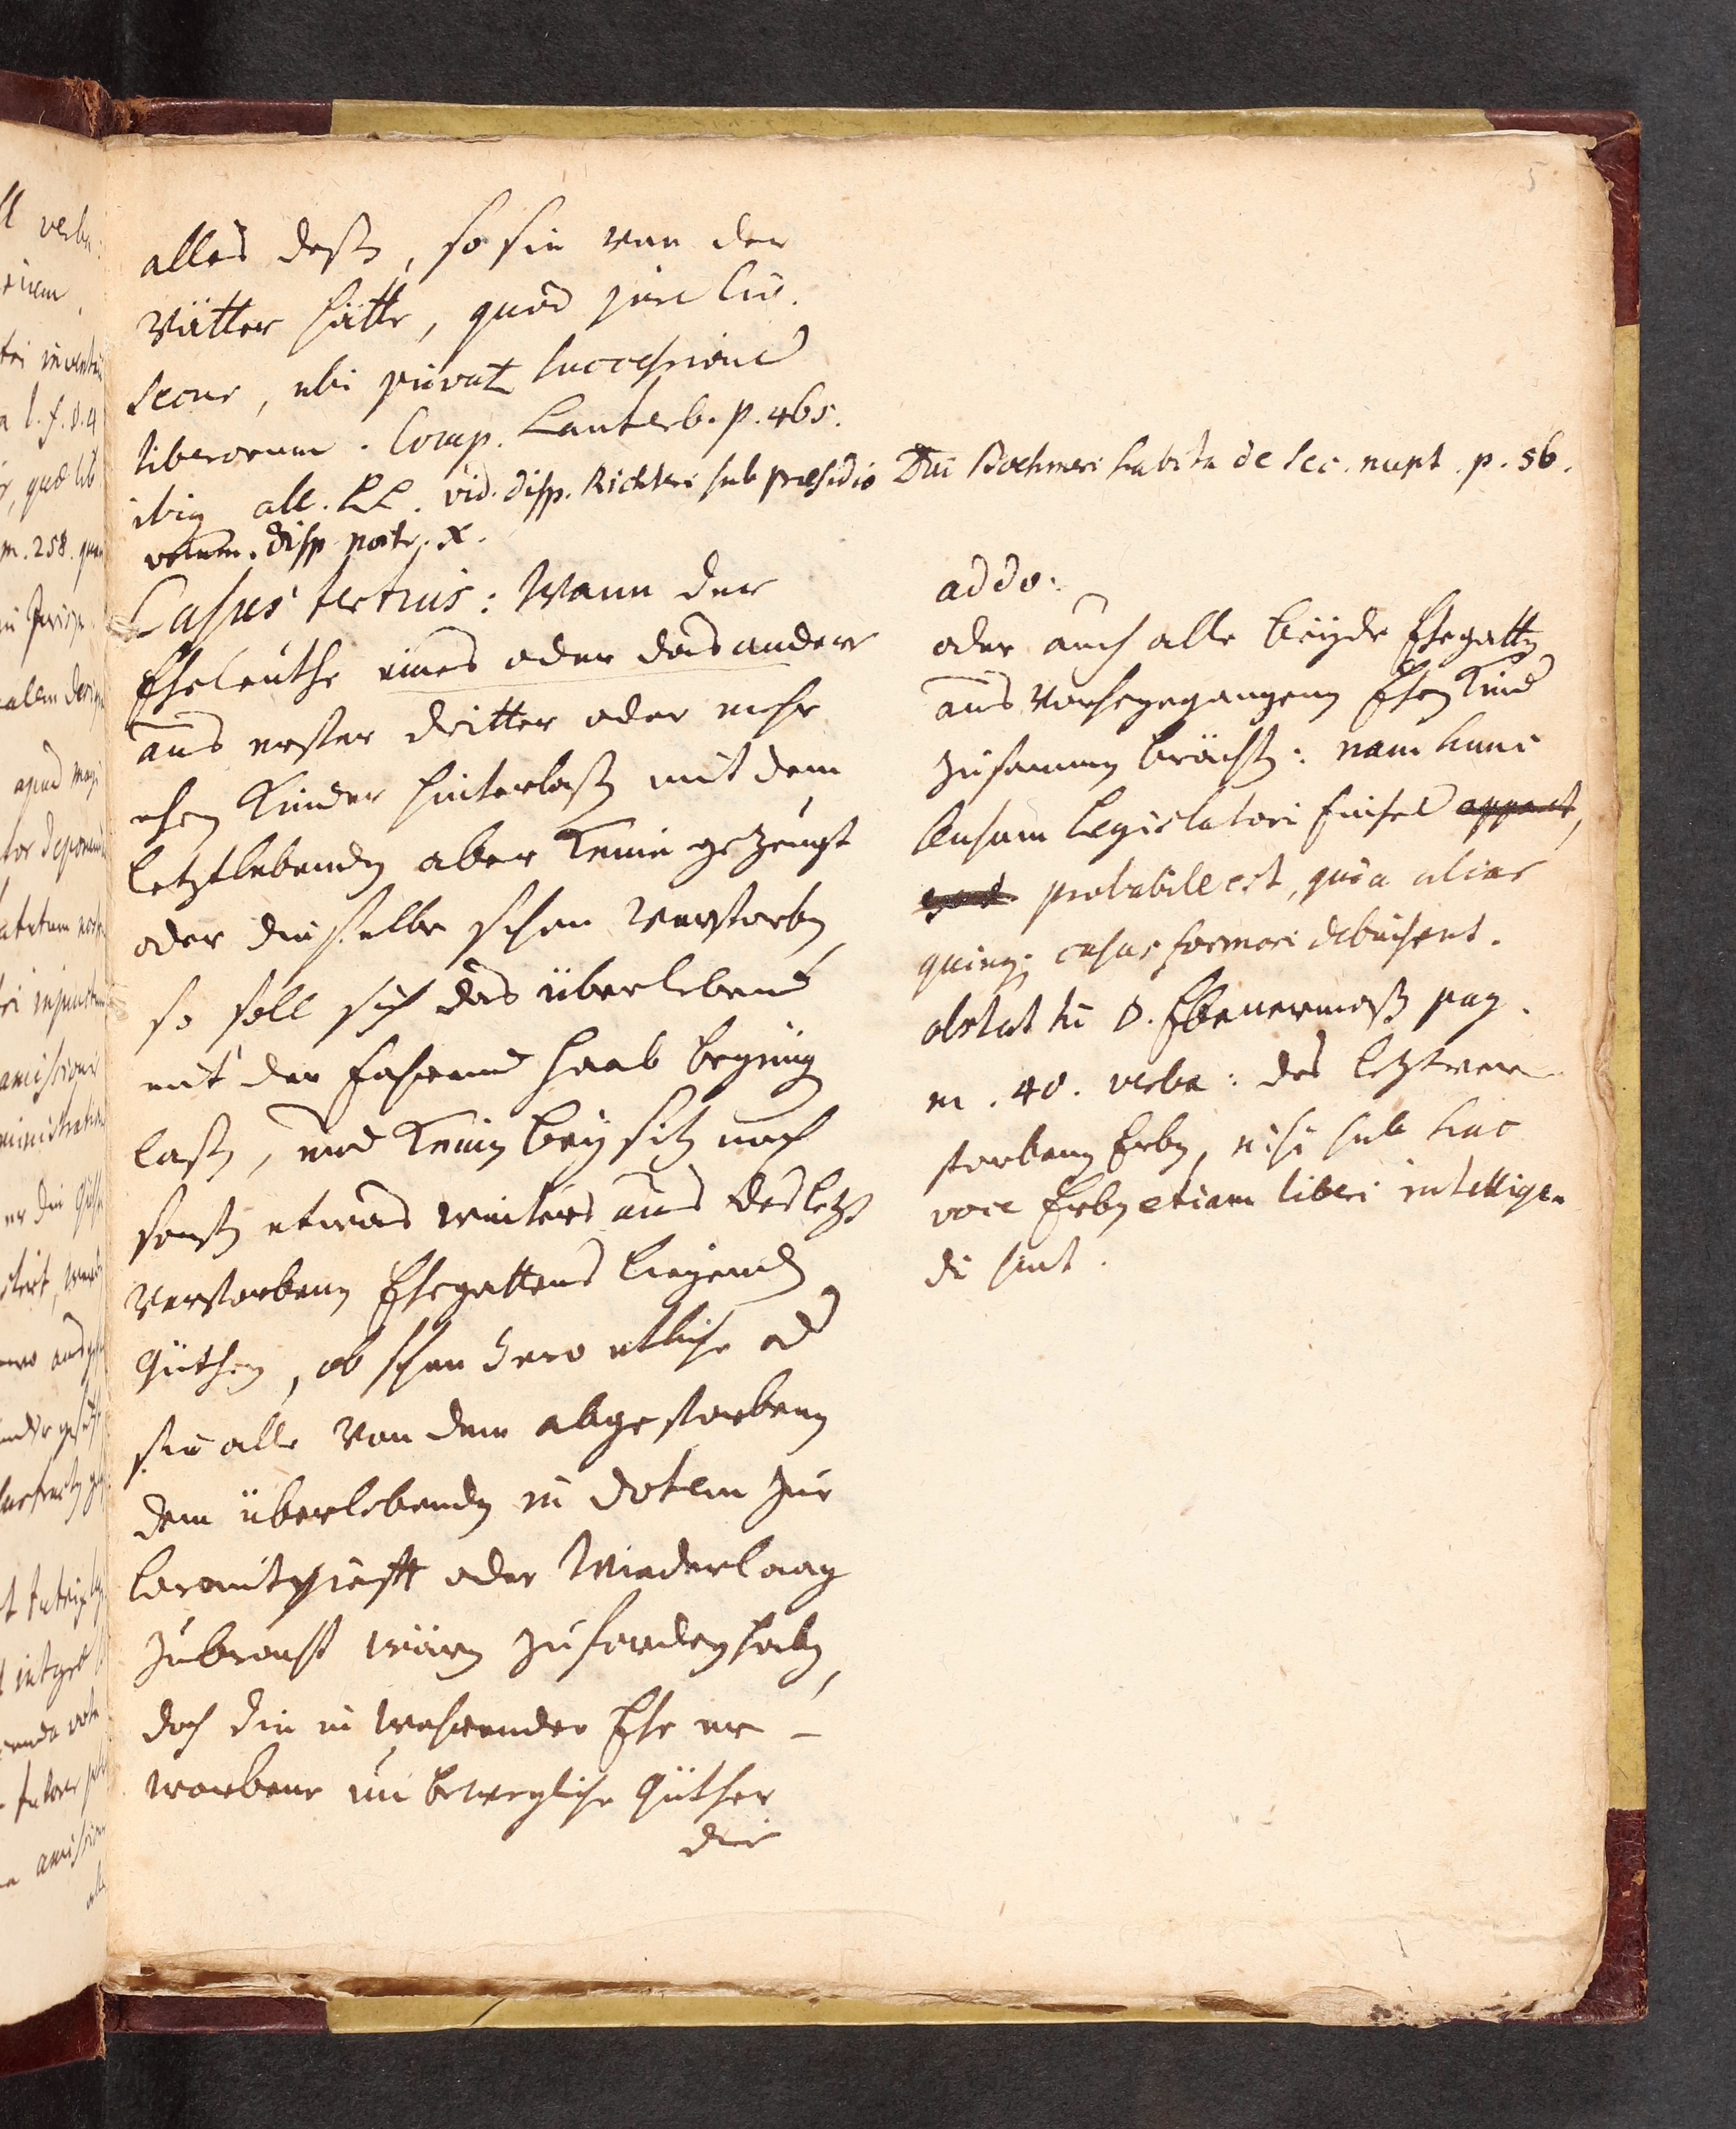 5
alles deß, so sie von der
Vätter hätte, quod jure Civ.
secus, ubi privat successione
liberorum. Comp. Lauterb. p. 465.
ibiq all. LL. vid. disp. Richteri sub præsidio Dni Boehmeri habita de sec. nupt. p. 56.
disp nostr. X.
Casus tertius: Wann der
Eheleuthe eines oder das andere
aus erster dritter oder mehr
ehen Kinder hinterlaßen mit dem
letztlebenden aber keine gezeugt
oder dieselbe schon verstorben,
so soll sich das überlebend
mit der fahrend Haab begnüg
laßen, und keinen beysitz noch
sonsten etwas weiters aus des letzt
verstorbenen Ehegattens liegenden
Güthern, ob schon dero etliche od
sie alle von dem abgestorbenen
dem überlebenden in dotem zur
oder Wiederlaag
zubracht wären zufordern haben,
doch die in wehrender Ehe er-
worbene unbewegliche Güther
die
addo:
oder auch alle beyde Ehegatten
aus vorhergegangenen Ehen Kind
zusammen brächten: nam hunc
casum Legislatori fuisse appert,
probabile est, quia alias
quinq; casus formari debuissent.
obstat tn §. Ebenermaß pag.
m. 40. verba: des letztver-
storbenen Erben, nisi sub hac
voce Erben etiam liberi intelligen
di sint.